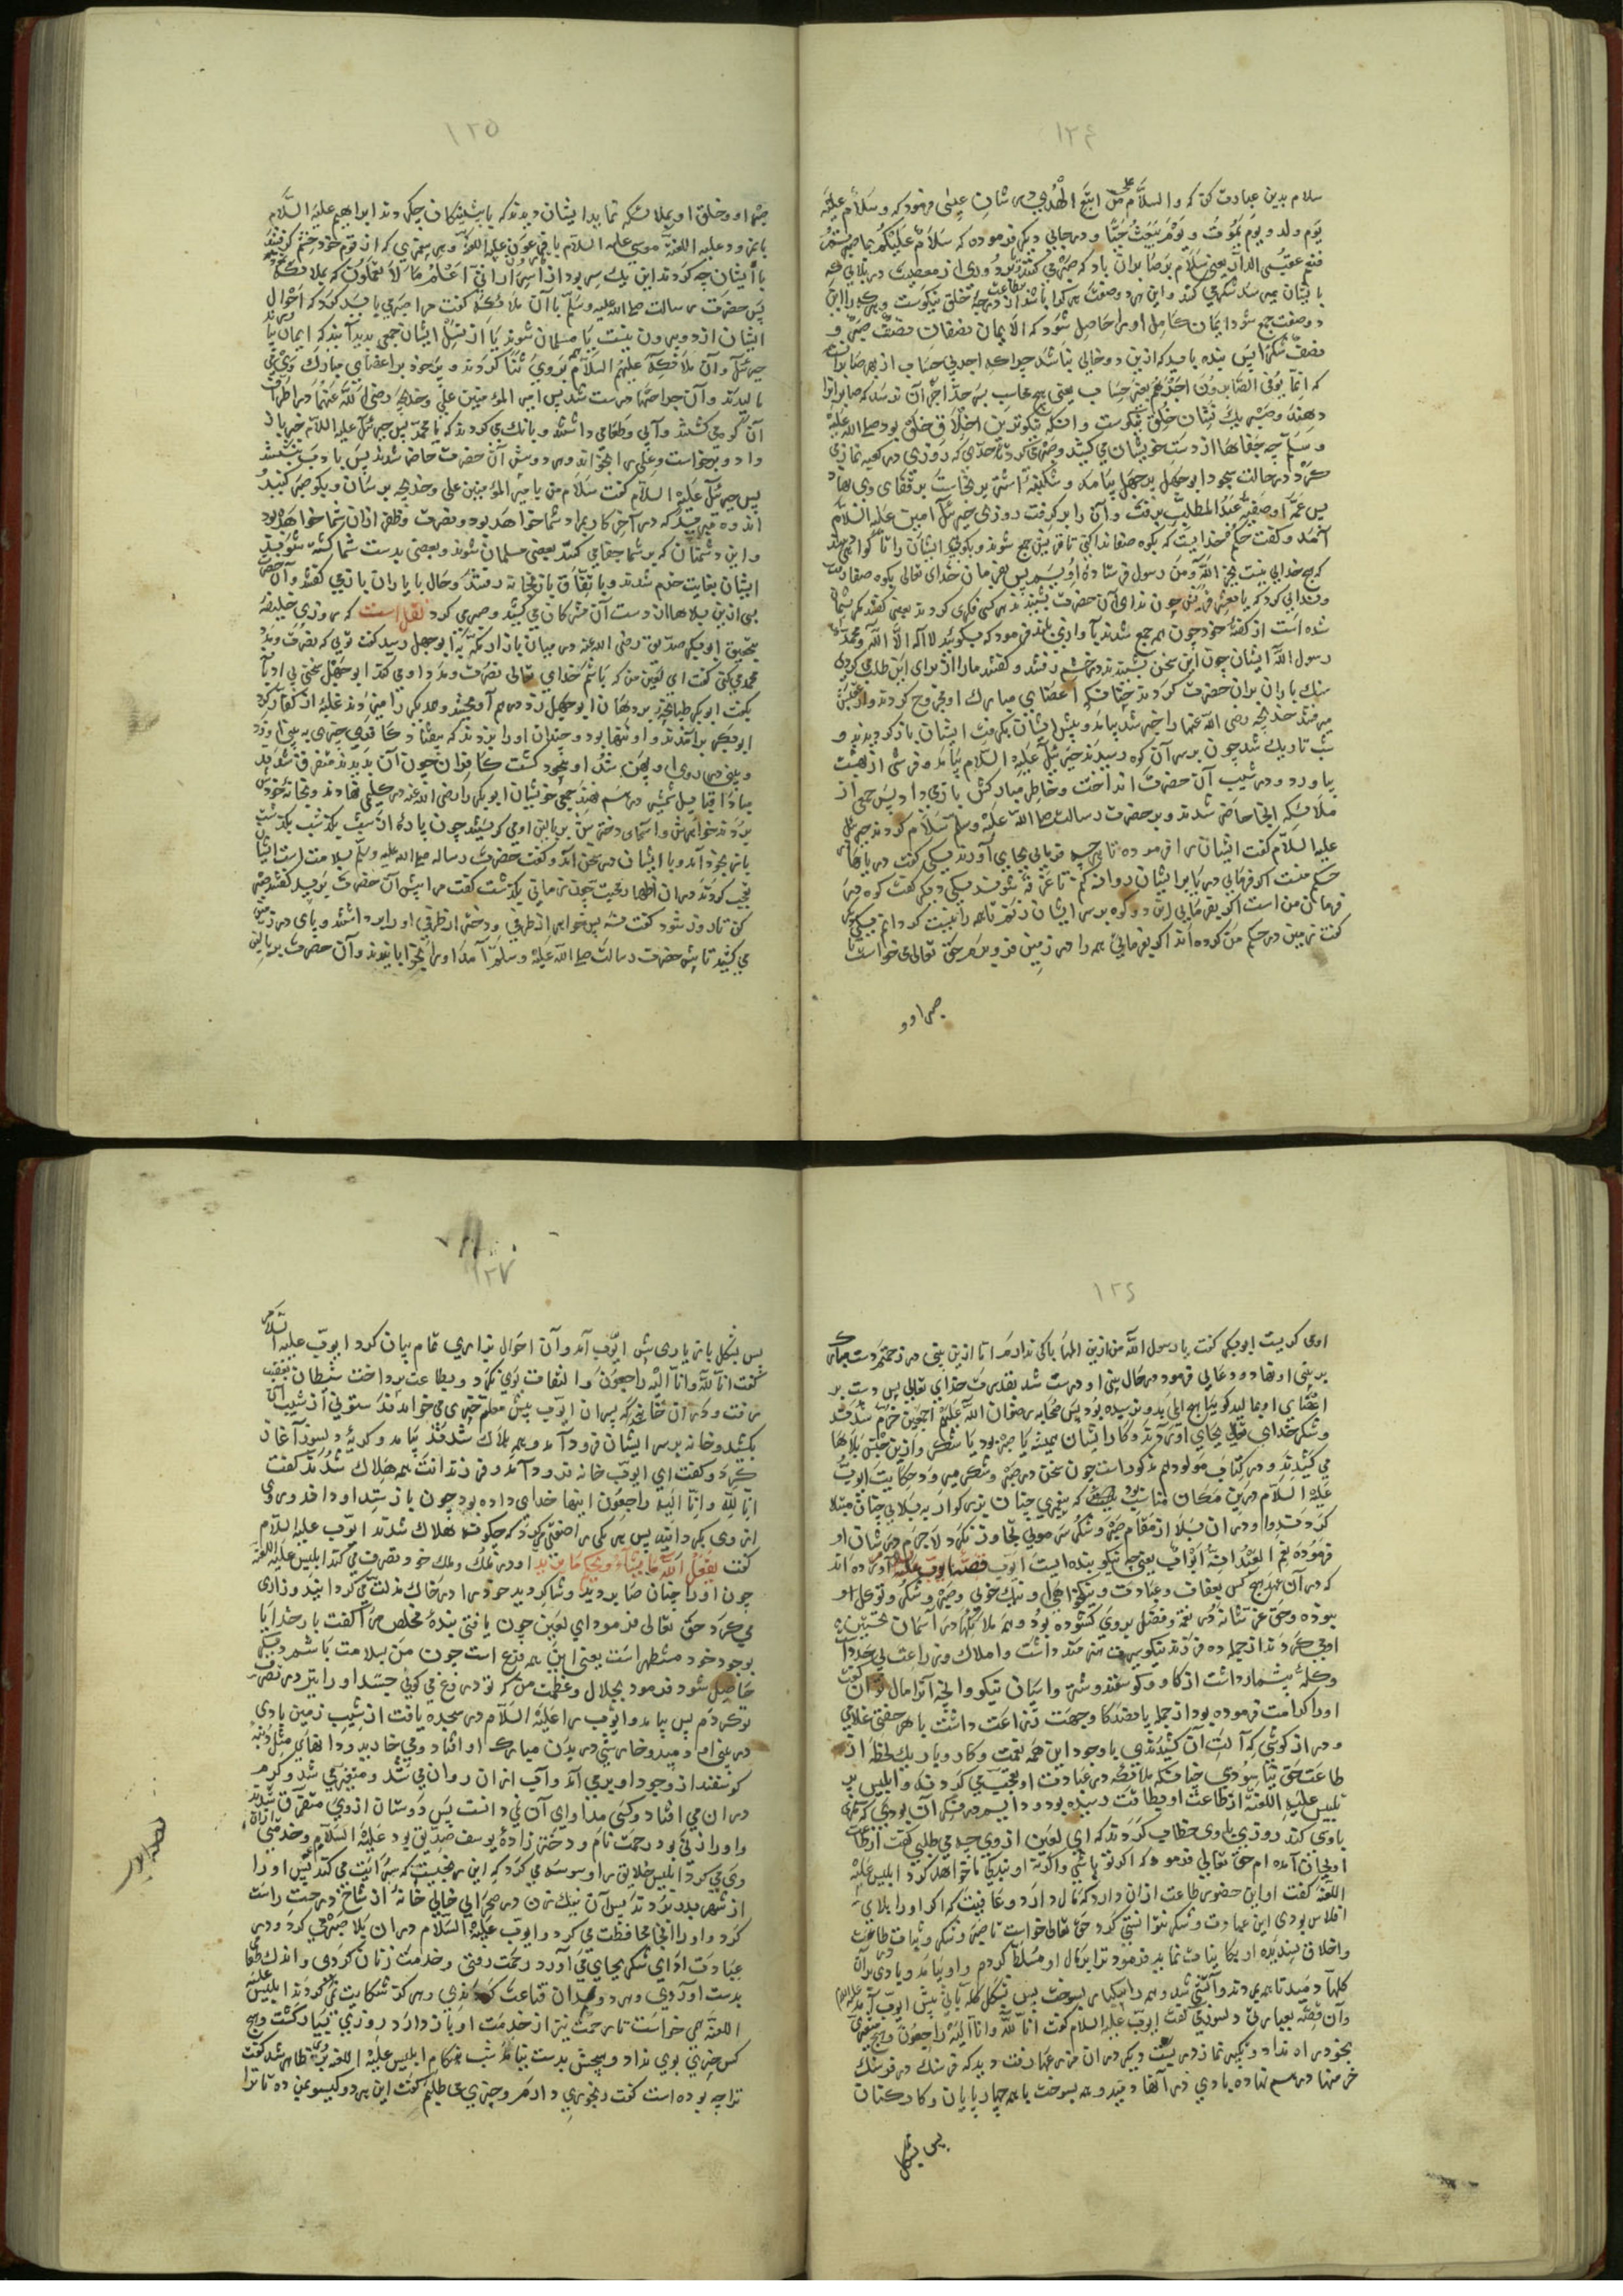 ۱۲۴
سلام بدین عبادت کن که والسلام علی من اتبع الهدی در شان عیسی فرمود که وسلام علیه
یوم ولد و یوم یموت و یوم یبعث حیا و در جایی دیگر فرموده که سلام علیکم بما صبرتم
فنعم عقبی الدار یعنی سلام بر صابران باد که صبر می کنند
با ایشان می رسد شکر می کنند و این هر دو صفت هر کرا باشد از درجه خلق نیکوست
دو صفت جمع شود ایمان کامل او را حاصل شود که الایمان نصفان نصف صبر و
نصف شکر پس بنده باید که ازین دو خالی نباشد
که انما یوفی الصابرون اجرهم بغیر حساب یعنی
دهند و صبر یک نشان خلق نیکوست و آنکه نیکوترین اخلاق خلق بود صلی الله علیه
و سلم چه جفاها از دست خویشان می کشید و صبر می کرد تا حدی که روزی در کعبه نماز می
کرد در حالت سجود ابوجهل بیامد و شکنبه اشتر بر پشت
پس عمه او صفیه عبد المطلب برفت و آن را برگرفت روزی جبرئیل امین علیه السلام
آمد و گفت حکم خدایست که بکوه صفا ندا کنی تا قریش جمع شوند و بگوی ایشان را تا گواهی دهند
که هیچ خدایی نیست بجز الله و من رسول فرستاده اویم پس بفرمان خدای تعالی بکوه صفا رفت
و ندایی کرد که یا معشر قریش چون ندای آن حضرت بشنیدند هر کس فکری کردند یعنی گفتند مگر
شده است از گفته خود چون همه جمع شدند بآواز بلند فرمود که بگویید لا اله الا الله محمد
رسول الله ایشان چون این سخن بشنیدند در خشم رفتند و گفتند ما را از برای این طلب کردی
سنک باران بران حضرت کردند چنانکه اعضای مبارک او مجروح کردند
می رفتند خدیجه رضی الله عنها را خبر شد بیامد و پیش ایشان بگرفت ایشان باز گردیدند و
شب تاریک شد چون بر سر آن کوه رسیدند جبرئیل علیه السلام بیامد و فرشی از بهشت
بیاورد و در شیب آن حضرت انداخت و خاطر مبارکش بازی داد پس جمعی از
ملائکه آنجا حاضر شدند و بر حضرت رسالت صلی الله علیه وسلم سلام کردند جبرئیل
علیه السلام گفت ایشان را فرموده تا هر چه فرمایی بجای آورند یکی گفت دریاها
حکم منست اگر فرمایی دریا بر ایشان روانه کنم تا غرقه شوند یکی دیگر گفت کوه در
فرمان من است اگر بفرمایی این دو کوه بر سر ایشان زنم تا همه را نیست گردانم یکی
گفت زمین در حکم من کرده اند اگر بفرمایی همه را در زمین فرو برم حق تعالی می خواست تا
صبر او و
۱۲۵
صبر او و خلق او بملائکه نماید ایشان دیدند که با پیشینگان چه کردند ابراهیم علیه السلام
با نمرود علیه اللعنة موسی علیه السلام با فرعون علیه اللعنة
با ایشان چه کردند این یک سر بود از اسرار انی اعلم ما لا تعلمون که بملائکه
پس حضرت رسالت صلی الله علیه وسلم با آن ملائکه گفت مرا صبر می باید کرد که احوال
ایشان از دو بیرون نیست یا مسلمان شوند یا از نسل ایشان جمعی پدید آیند که ایمان
جبرئیل و آن ملائکه علیهم السلام بر وی ثنا کردند و پر خود بر اعضای مبارک وی
مالیدند و آن جراحتها درست شد پس امیر المؤمنین علی و خدیجه رضی الله عنهما در اطراف
آن کوه می گشتند و آبی و طعامی داشتند و بانک می کردند که یا محمد پس جبرئیل علیه السلام خبر باز
داد و برخاست و علی را بخواند و
پس جبرئیل علیه السلام گفت سلام من یا امیر المؤمنین علی و خدیجه برسان و بگو صبر کنید
اندوه مبرید که در آخر کار بمراد شما خواهد بود و نصرت و ظفر ازان شما خواهد بود
و این دشمنان که بر شما جفا می کنند بعضی مسلمان شوند و بعضی بدست شما کشته شوند
ایشان بغایت خرم شدند و باتفاق باز بخانه رفتند و حال با یاران باز می گفتند و آن حضرت
بسی ازین بلاها از دست آن مشرکان می کشید و صبر می کرد نقل است که روزی خلیفه
بتحقیق ابوبکر صدیق رضی الله عنه در میان بازار مکه بابوجهل رسید گفت تویی که نصرت و مدد
محمد می کنی گفت ای لعین من که باشم خدای تعالی نصرت و مدد او می کند ابوجهل سخنی بی ادبانه
بگفت ابوبکر طپانچه بر دهان ابوجهل زد در هم آویختند و یکدیگر را می زدند غلبه از کفار
ابوبکر برآمدند و او تنها بود و چندان او را بزدند که بیفتاد کافری چیزی بر بینی او زد
و بینی در روی او پهن شد او بیخود گشت کافران چون آن بدیدند متفرق شدند
مبادا قبایل شمشیر در هم نهند جمعی خویشان ابوبکر را رضی الله عنه در گلیمی نهادند و بخانه خودش
بردند خواهرش و اسمای دخترش بر بالین او می گریستند چون پاره از شب بگذشت
باز بخود آمد و با ایشان در سخن آمد و گفت حضرت رساله صلی الله علیه وسلم بسلامت است ایشان
تعجب کردند دران اظهار محبت چون زمانی بگذشت گفت مرا پیش آن حضرت برید گفتند صبر
کن تا روز شود گفت نه پس خواهر از طرفی و دختر از طرفی او را برداشتند و پای در زمین
می کشید تا پیش حضرت رسالت صلی الله علیه وسلم آمد او را بخوابانیدند و آن حضرت بر بالین
۱۲۶
او می گریست ابوبکر گفت یا رسول الله من ازین المها باکی ندارم اما ازین بینی در زحمتم دست مبارک
بر بینی او نهاد و دعایی فرمود در حال بینی او درست شد بقدرت خدای تعالی پس دست بر
اعضای او بمالید گویا هیچ المی بدو نرسیده بود پس صحابه رضوان الله علیهم اجمعین خرم شدند
و شکر خدای تعالی بجای آوردند و کار ایشان همیشه یا صبر بود یا شکر و ازین جنس بلاها
می کشیدند و در کتاب مولودهم مذکورست چون سخن در صبر و شکر می رود حکایت ایوب
علیه السلام درین مکان مناسب بود که پیغمبری چنان بزرگوار به بلایی چنان مبتلا
کردند و او دران بلا از مقام صبر و شکر سر مویی تجاوز نکرد لاجرم در شان او
فرموده نعم العبد انه اواب یعنی چه نیکو بنده ایست ایوب قصه ایوب علیه السلام آورده اند
که در آن عهد هیچ کس بعفاف و عبادت و نیکوافعالی و نیک خویی و صبر و شکر و توکل او
نبوده و حق عز شانه در نعمة و فضل بر وی کشوده بود و همه ملائکه در آسمان تحسین
او می کردند از جمله ده فرزند نیکو سیرت هنرمند داشت و املاک و زراعت بی حد
و گله بیشمار داشت از گاو و گوسفند و شتر و اسبان نیکو و آنچه آنرا مال توان گفت
او را کرامت فرموده بود از جمله پانصد گاو جهت زراعت داشت با هر جفتی غلامی
و دراز گوشی که آلت آن کشیدندی با وجود این همه نعمت و کار و بار یک لحظه از
طاعت حق نیاسودی چنانکه ملائکه در عبادت او تعجب می کردند و ابلیس پر
تلبیس علیه اللعنة از طاعت او بطاقت رسیده بود و دایم در فکر آن بودی که مکری
با وی کند روزی با وی خطاب کردند که ای لعین از وی چه می طلبی گفت از طاعت
او بجان آمده ام حق تعالی فرمود که اگر تو باشی و اگر نه او بندگی ما خواهد کرد ابلیس علیه
اللعنة گفت او این حضور طاعت ازان دارد که مال دارد و عافیت که اگر او را بلای
افلاس بودی این عبادت و شکر نتوانستی کرد حق تعالی خواست تا صبر و شکر و ثبات طاعت
و اخلاق پسندیده او بکاینات نماید فرمود ترا بر مال او مسلط کردم او بیامد و بادی بران
گلها دمید تا بمردند و آتشی شد و همه را بیکبار بسوخت پس بشکل گله بانی پیش ایوب آمد علیه السلام
و آن قصه بعبارتی دلسوزی گفت ایوب علیه السلام گفت انا لله وانا الیه راجعون و هیچ تغیری
بخود راه نداد و تکبیر نماز در بست دیگر دران مزرعها رفت دید که فرسنک در فرسنک
خرمنها در هم نهاده بادی در آنها دمید و همه بسوخت با همه چهارپایان و کارکنان
پس بشکل
۱۲۷
پس بشکل بازیاری پیش ایوب آمد و آن احوال بزاری تمام بیان کرد ایوب علیه السلام
گفت انا لله وانا الیه راجعون و التفات بوی نکرد و بطاعت پرداخت شیطان بغضب
برفت و در آن خانه که پسران ایوب پیش معلم چیزی می خواندند ستونی از شیب آن
بکشید و خانه بر سر ایشان فرود آمد و همه هلاک شدند بیامد و گریه دلسوز آغاز
کرد و گفت ای ایوب خانه فرود آمد و فرزندانت همه هلاک شدند گفت
انا لله وانا الیه راجعون اینها خدای داده بود چون باز ستد او داند و روی
از وی بگردانید پس هر یکی را صفتی کرد که چگونه هلاک شدند ایوب علیه السلام
گفت یفعل الله ما یشاء ویحکم ما یرید او در ملک و ملک خود تصرف می کند ابلیس علیه اللعنة
چون او را چنان صابر دید و شاکر دید خود را در خاک مذلت می گردانید و زاری
می کرد حق تعالی فرمود ای لعین چون یافتی بنده مخلص مرا گفت بار خدایا
بوجود خود مستظهر است یعنی این همه فرع است چون من بسلامت باشم دیگر همه
حاصل شود فرمود بجلال و عظمت من که تو دروغ می گویی جسد او را نیز در تصرف
تو کردم پس بیامد و ایوب را علیه السلام در سجده یافت از شیب زمین بادی
در بینی او دمید و خارشی در بدن مبارک او افتاد و می خارید و دانهای مثل دنبه
گوسفند از وجود او بر می آمد و آب ازان روان می شد و متغیر می شد و کرم
دران می افتاد و کسی مداوای آن نمی دانست پس دوستان از وی متفرق شدند
و او را زنی بود رحمت نام و دخترزاده یوسف صدیق بود علیه السلام و خدمتی
وی می کرد ابلیس خلایق را وسوسه می کرد که این رنجیست که سرایت می کند پس او را
از شهر بدر بردند پس آن نیک زن در صحرایی خالی خانه از شاخ درخت راست
کرد و او را آنجا محافظت می کرد و ایوب علیه السلام دران بلا صبر می کرد و در
عبادت ادای شکر بجای می آورد رحمت رفتی و خدمت زنان کردی و اندک طعام
بدست آوردی و هر دو بدان قناعت کردندی و هرگز شکایت نمی کردند ابلیس علیه
اللعنة می خواست تا رحمت نیز از خدمت او باز دارد روزی بسیار گشت و هیچ
کس چیزی بوی نداد و هیچش بدست نیامد شب هنگام ابلیس علیه اللعنة بر وی ظاهر شد گفت
ترا چه بوده است گفت رنجوری دارم و چیزی می طلبم گفت این هر دو گیسو بمن ده تا ترا